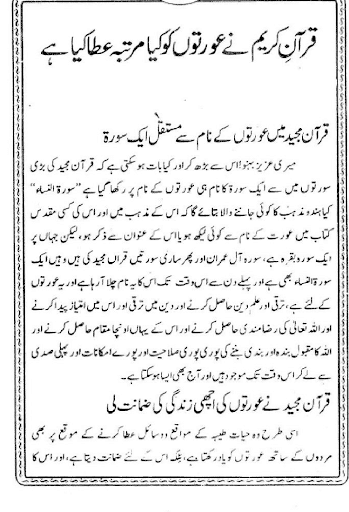 قرآنِ کریم نے عورتوں کو کیا مرتبہ عطا کیا ہے
قرآن مجید میں عورتوں کے نام سے مستقل ایک سورۃ
میری عزیز بہنو! اس سے بڑھ کر اور کیا بات ہو سکتی ہے کہ قرآن مجید کی بڑی
سورتوں میں سے ایک سورۃ کا نام ہی عورتوں کے نام پر رکھا گیا ہے ”سورۃ النساء“
کیا ہندو مذہب کا کوئی جاننے والا بتائے گا کہ اس کے مذہب میں اور اس کی کسی مقدس
کتاب میں عورت کے نام سے کوئی لیکھ ہو یا اس کے عنوان سے ذکر ہو، لیکن جہاں پر
ایک سورہ بقرہ ہے، سورہ آل عمران اور پھر ساری سورتیں قرآن مجید کی ہیں وہیں ایک
سورۃ النساء بھی ہے اور پہلے دن سے اس وقت تک اس کا یہ نام چلا آرہا ہے اور یہ عورتوں
کے لئے ہے، ترقی اور علم دین حاصل کرنے اور دین میں ترقی اور اس میں امتیاز پیدا کرنے
اور اللہ تعالی کی رضامندی حاصل کرنے اور اس کے یہاں اونچا مقام حاصل کرنے اور
اللہ کا مقبول بندہ اور بندی بننے کی پوری پوری صلاحیت اور پورے امکانات اور پہلی صدی
سے لے کر اس وقت تک موجود ہیں اور آج بھی ایسا ہو سکتا ہے۔
قرآن مجید نے عورتوں کی اچھی زندگی کی ضمانت لی
اسی طرح وہ حیات طیبہ کے مواقع و وسائل عطا کرنے کے موقع پر بھی
مردوں کے ساتھ عورتوں کو یاد رکھتا ہے، بلکہ اس کے لئے ضمانت دیتا ہے، اور اس کا